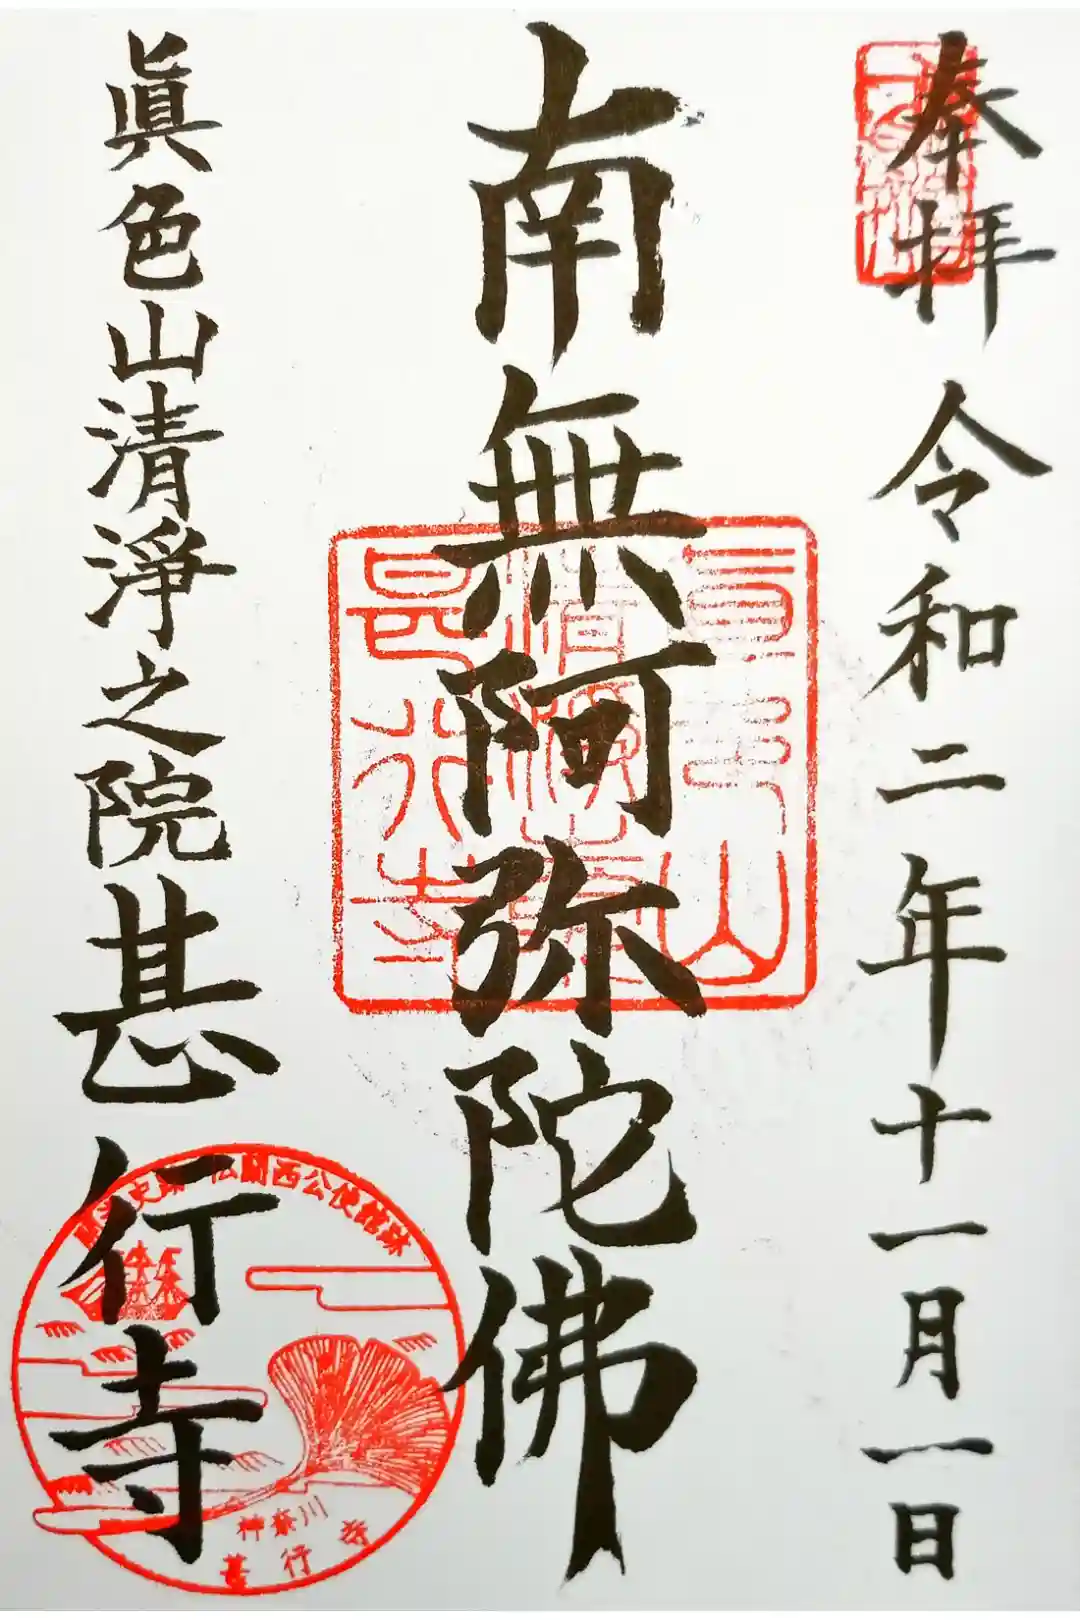 奉拝
令和二年十一月一日
南無阿弥陀佛
眞色山清淨之院甚行寺
蘭西公使館跡
神奈川
甚行寺